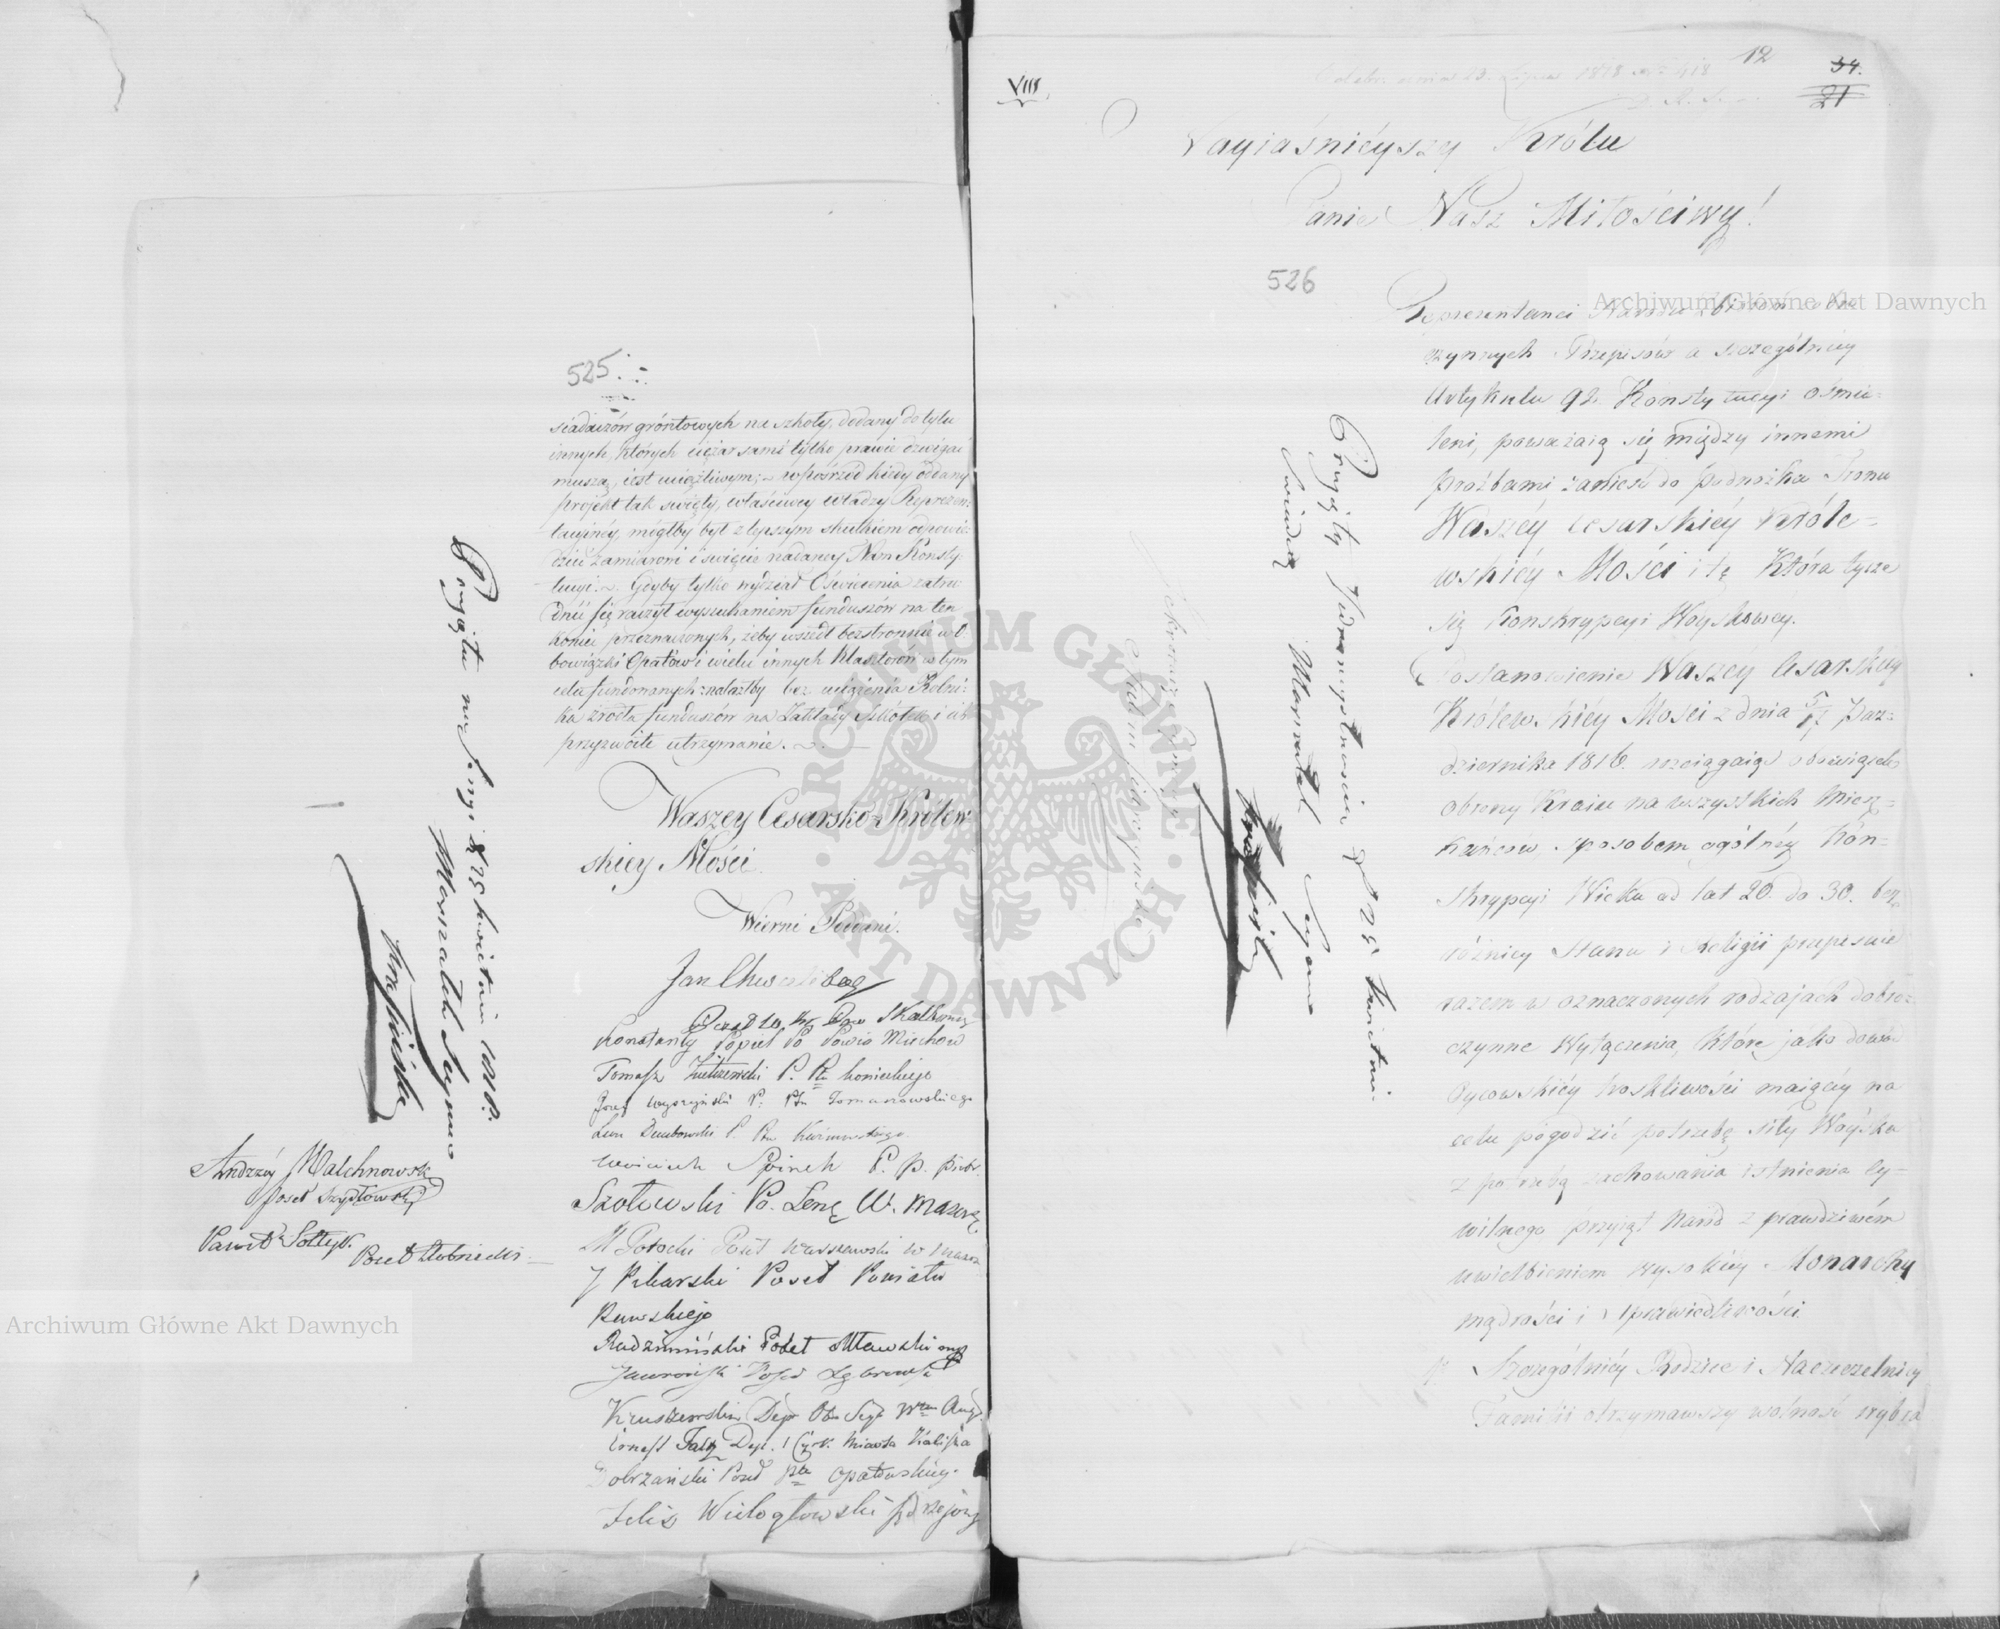 525.
siadaczów gróntowych na szkoły, dodany do tylu
innych, których ciężar sami tylko prawie dzwigać
muszą, iest uciążliwym; wpośrzód kiedy oddany
projekt tak święty, właściwey władzy Reprezen-
tacyinéy, mógłby był z lepszym skutkiem odpowie-
dzieć zamiarom i święcie nadaney Nam Konsty-
tucyi. Gdyby tylko wydział Oświecenia zatru-
dnić się raczył wyszukaniem funduszów na ten
koniec przeznaczonych, żeby wszedł bezstronnie w O-
bowiązki Opatów i wielu innych Klasztorów w tym
celu fundowanych: znalazłby bez uciążenia Rolni-
ka źrodła funduszów na Zakłady Szkółek i ich
przyzwoite utrzymanie.
Waszey Cesarsko-Królew-
skiey Mości
Wierni Poddani.
Jan Chwalibog
Konstanty Popiel Po Powia Miechow
Tomasz P. Ptu Konieckiego
Józef Wyszyński P. Ptu Tomaszowskiego
Leon Dembowski P. Ptu
Woyciech P. p. Piotr.
Szołowski Po. Łenę W. Mazow.
M Potocki Poseł Warszawski W Mazow
J Piharski Poseł Powiatu
Rawskiego
Radzimiński Poseł Mławski mp
Jaworski Poseł
Kruszewski Dep Obw Sey Wtwa Aug.
Ernest Faltz Dep. 1 Cyrk. Miasta Kalisza
Dobrzański Poseł Ptu Opatowskiey
Felix Wielogłowski Jędrzejow
Przyjęta na Sesyi d. 25 kwietnia 1818 r.
Marszałek Seymu
Krasiński
Andrzéy Walchnowski
Poseł Szydłowski
Paweł Sołtyk.
Poseł
VIII
12
34.
21
Nayiaśniéyszy Królu
Panie Nasz Miłościwy!
526
Reprezentanci Narodu
czynnych Przepisów a szczególniey
Artykułu 92. Konstytucyi ośmie-
leni, poważaią się między innemi
prośbami zanieść do podnóżka Tronu
Waszéy Cesarskiéy Króle-
wskiéy Mości i tę, Która tycze
się Konskrypcyi Woyskowey.
Postanowienie Waszéy Cesarskiey
Królewskiéy Mości z dnia Paz-
dziernika 1816. rozciągaiąc obowiązek
obrony Kraiu na wszystkich Miesz-
kańców sposobem ogólnéy Kón-
skrypcyi Wieku od lat 20. do 30. bez
różnicy Stanu i Religii przepisuie
razem w oznaczonych rodzajach dobro-
czynne wyłączenia, które jako dowód
Oycowskiéy troskliwości maiącéy na
celu pogodzić potrzebę siły Woyska
z potrzebą zachowania istnienia Cy-
wilnego przyiął Naród z prawdziwém
uwielbieniem wysokiéy Monarchy
mądrości i sprawiedliwości.
Szczególniéy Rodzice i Naczelnicy
Familii otrzymawszy wolność wybra
Przyjęty Jednomyślnością d. 25 kwietnia
Marszałek Seymu
Krasiński
Archiwum Główne Akt Dawnych
Archiwum Główne Akt Dawnych
ARCHIWUM GŁÓWNE AKT DAWNYCH